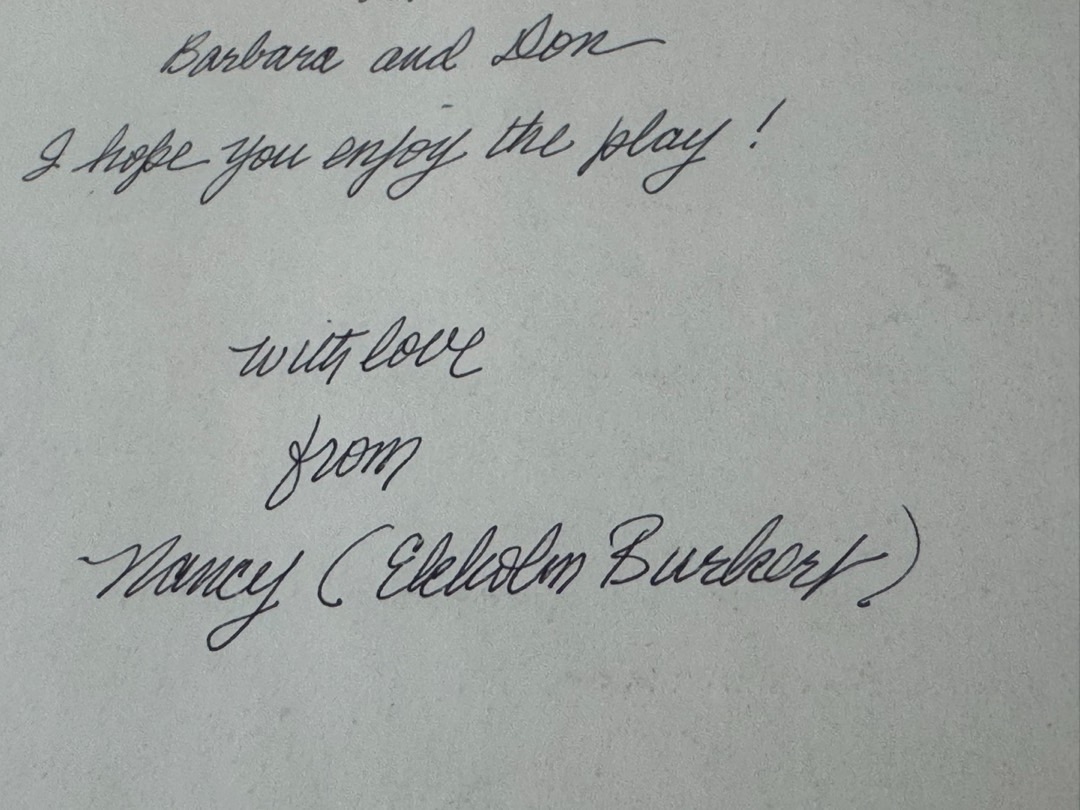 Barbara and Don
I hope you enjoy the play!
with love
from
Nancy (Ekholm Burkert)